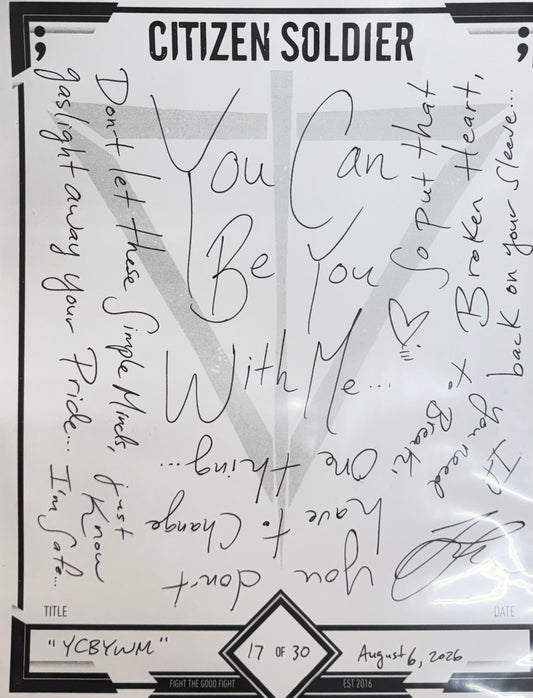 CITIZEN SOLDIER
;
;
You Can
Be You
With Me...
you don't
have to Change
One thing...
Don't let these Simple Minds, just Know
gaslight away your Pride... I'm Safe...
If you need
to Break,
So Put that
Broken Heart,
back on your sleeve...
TITLE
DATE
"YCBYWM"
17 OF 30
August 6, 2026
FIGHT THE GOOD FIGHT
EST 2016